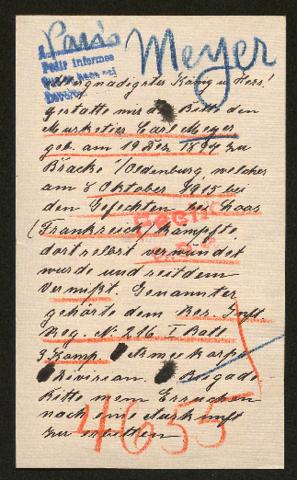 Paris
Meyer
Allergnädigster König u. Herr!
gestatte mir die Bitte den
Musketier Carl Meyer
geb. am 19 Dez 1894 zu
Bracke /Oldenburg, welcher
am 8 Oktober 1915 bei
den Gefechten bei Loos
(Frankreich) kämpfte
dortselbst verwundet
wurde und seitdem
Vermißt. Genannter
gehörte dem Res. Inft
Reg. No 216 I Batl
3 Komp. Armeekorps
Division. Brigade
Bitte mein Ersuchen
nach eine Auskunft
zu erteilen
4655